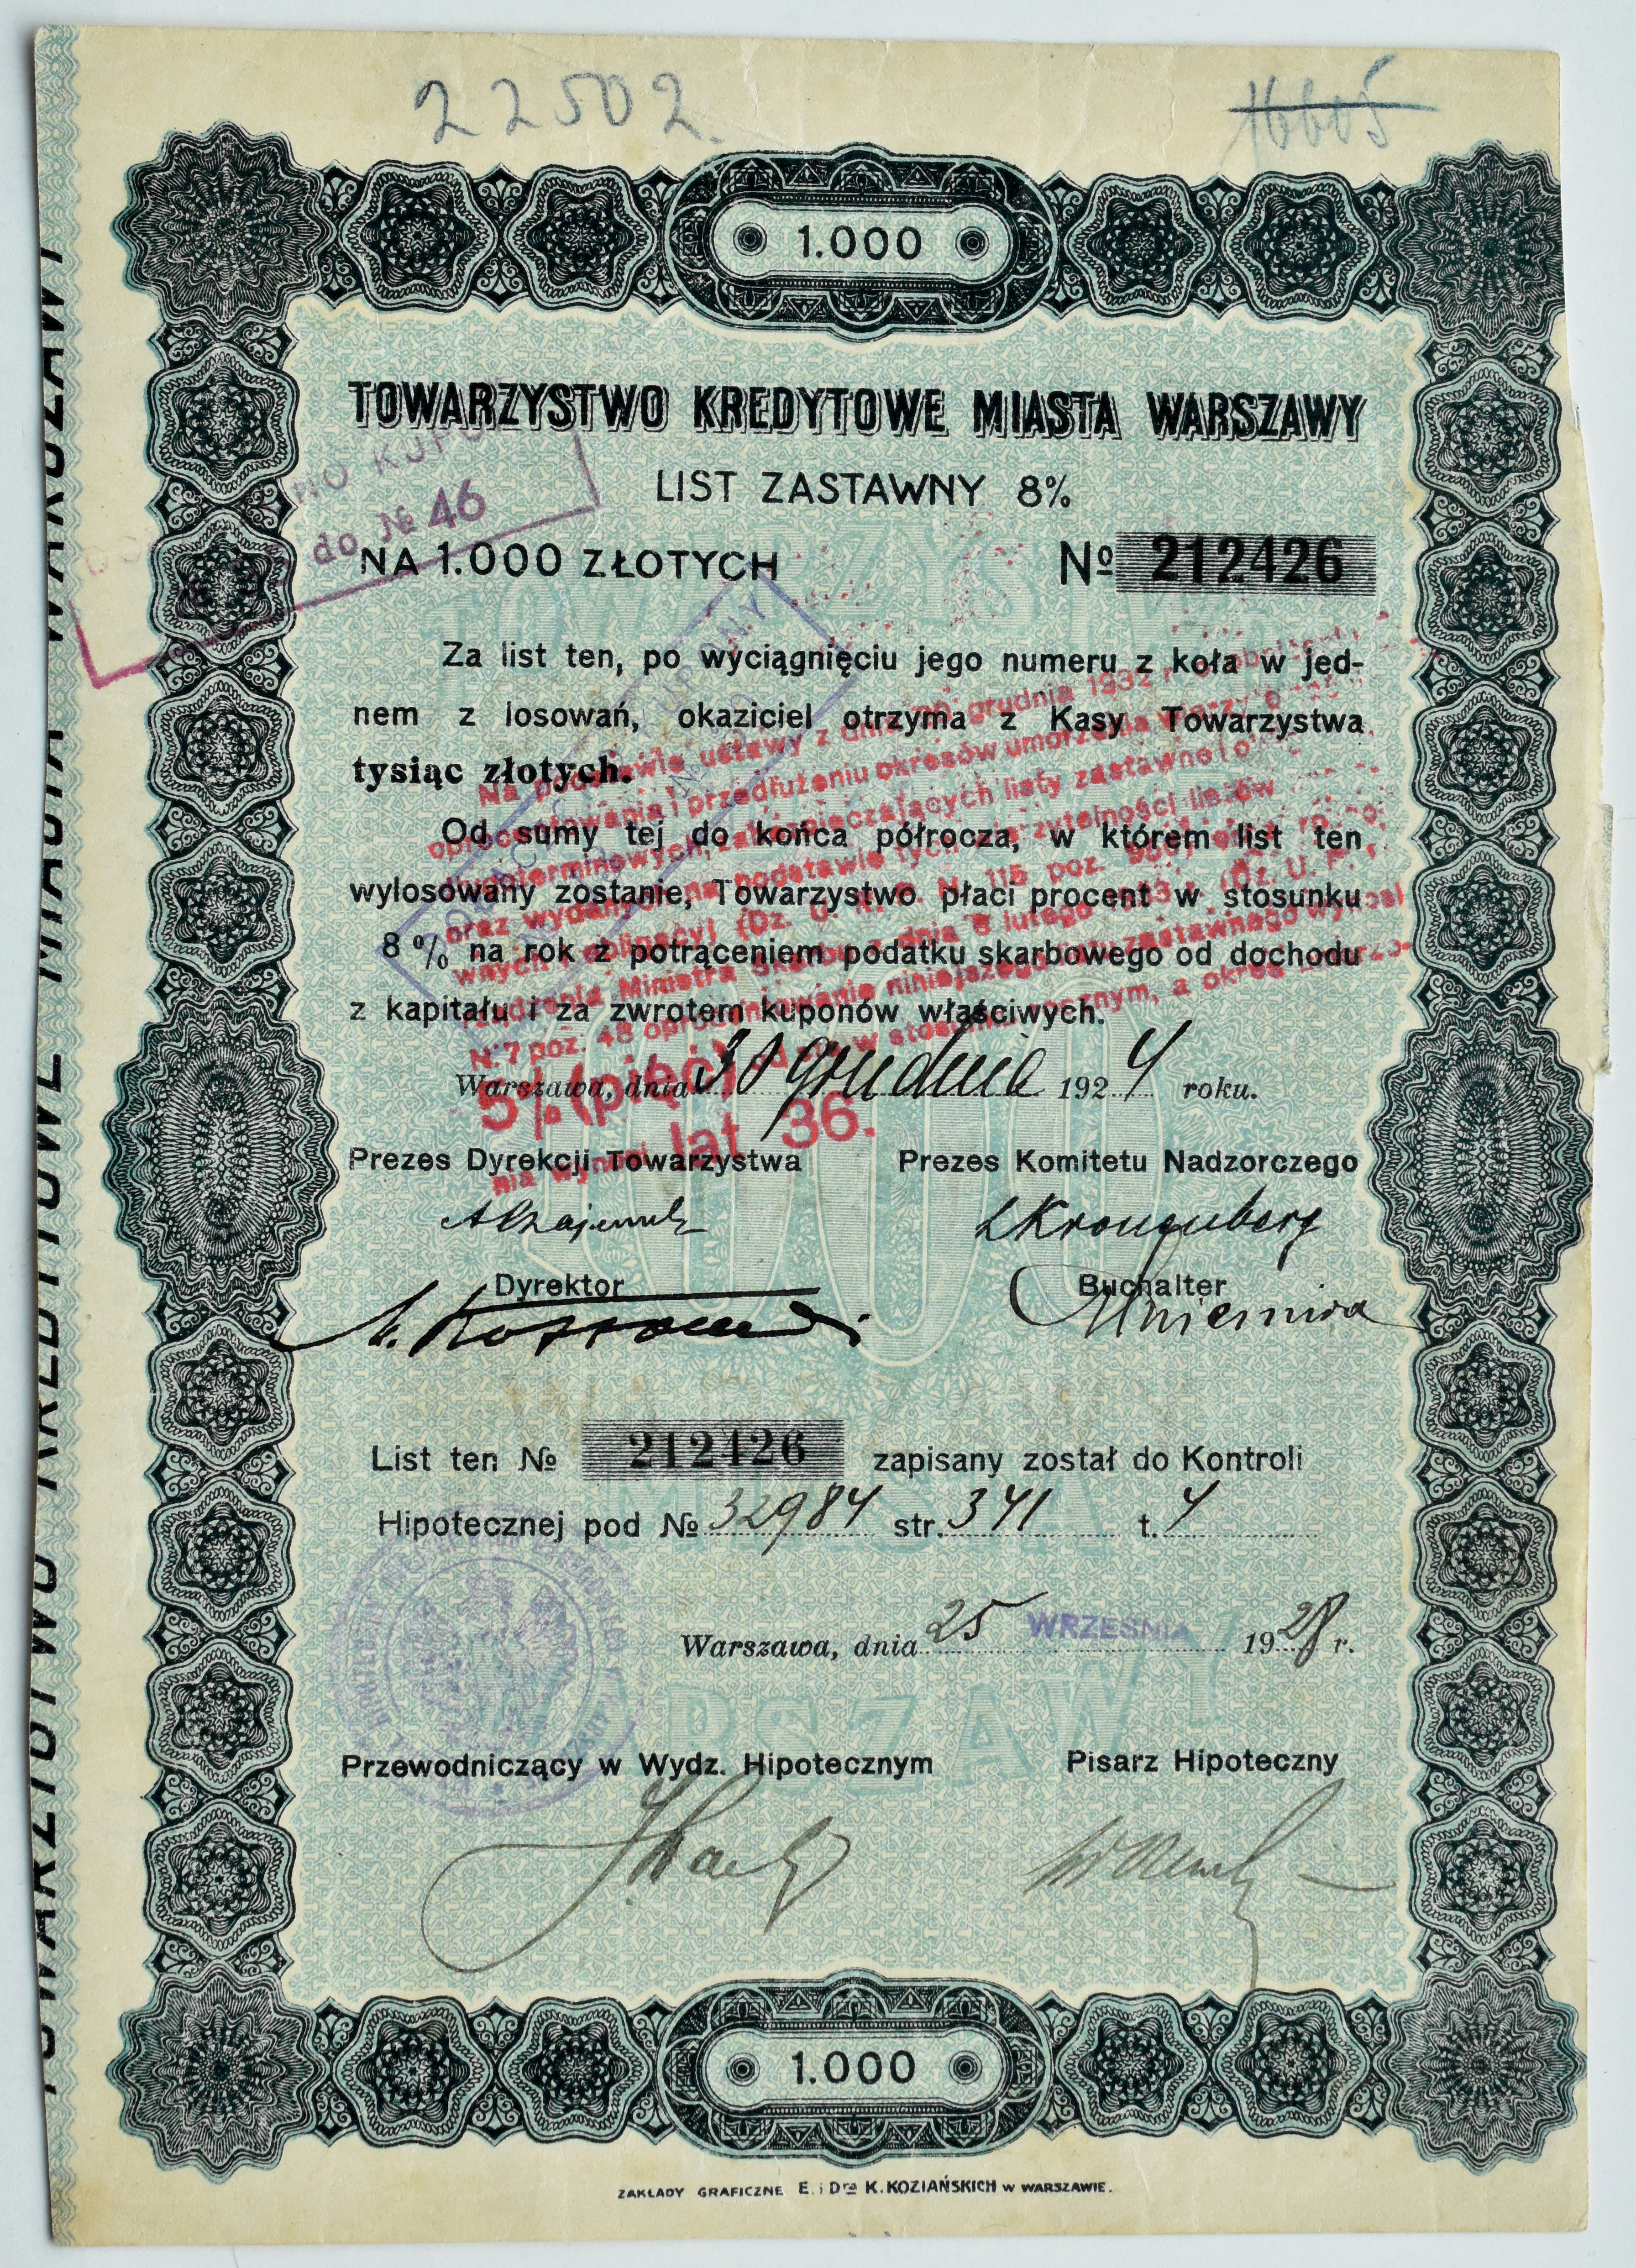 22502.
16605
1.000
TOWARZYSTWO KREDYTOWE MIASTA WARSZAWY
LIST ZASTAWNY 8%
do № 46
NA 1.000 ZŁOTYCH
№ 212426
Za list ten, po wyciągnięciu jego numeru z koła w jed-
nem z losowań, okaziciel otrzyma z Kasy Towarzystwa
tysiąc złotych.
Od sumy tej do końca półrocza, w którem list ten
wylosowany zostanie, Towarzystwo płaci procent w stosunku
8% na rok z potrąceniem podatku skarbowego od dochodu
z kapitału i za zwrotem kuponów właściwych.
Na podstawie ustawy z dnia grudnia 1932 r.
oprocentowania i przedłużeniu okresów umorzenia
zabezpieczających listy zastawne
oraz wydanych na podstawie tych
(Dz. U. R. P. № 115 poz.
Ministra Skarbu z dnia 8 lutego (Dz. U. R. P.
№ 7 poz. 48 oprocentowanie niniejszego zastawnego wynosi
5% (pięć) w stosunku rocznym, a okres umorze-
nia wynosi lat 36.
Warszawa, dnia 30 grudnia 1924 roku.
Prezes Dyrekcji Towarzystwa Prezes Komitetu Nadzorczego
LKronenberg
Dyrektor Buchalter
List ten № 212426 zapisany został do Kontroli
Hipotecznej pod № 32984 str. 341 t. 4
Warszawa, dnia 25 WRZEŚNIA 1928 r.
Przewodniczący w Wydz. Hipotecznym Pisarz Hipoteczny
1.000
ZAKŁADY GRAFICZNE E. i Dra K. KOZIAŃSKICH w WARSZAWIE.
TOWARZYSTWO KREDYTOWE MIASTA WARSZAWY